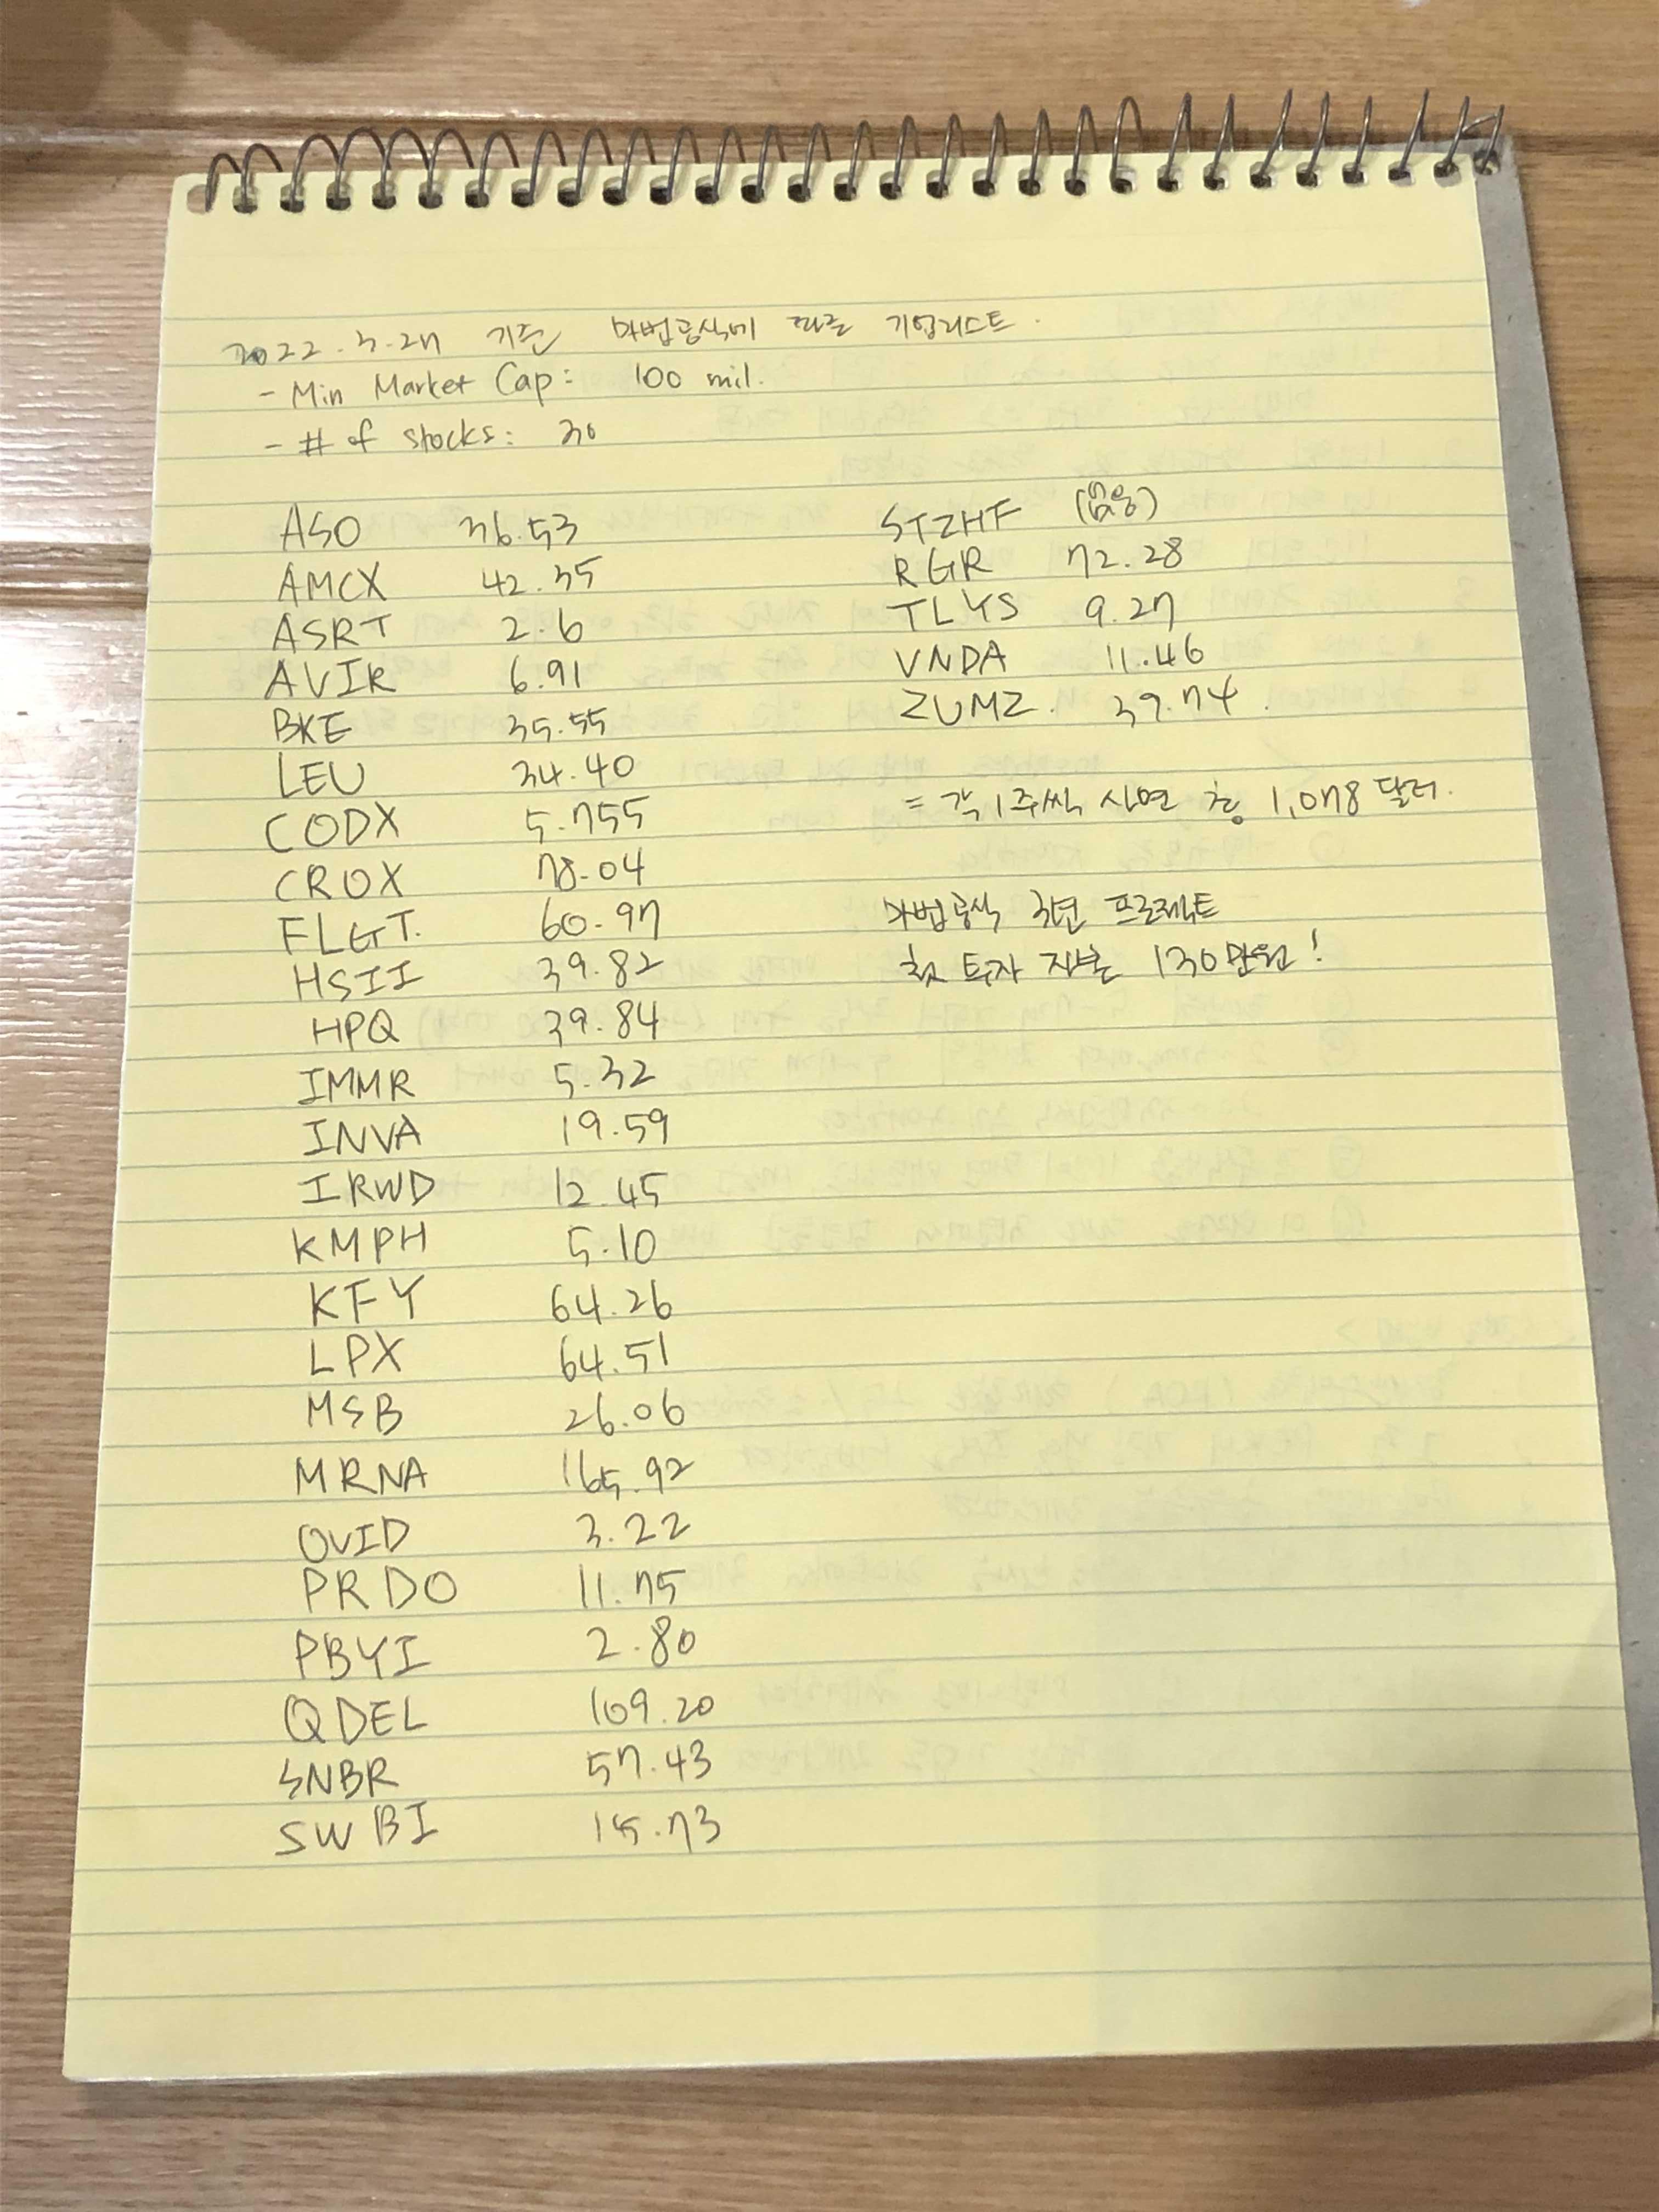 2022.3.27 기준 마법공식에 따른 기업리스트.
- Min Market Cap: 100 mil.
- # of stocks: 30
ASO 36.53
AMCX 42.35
ASRT 2.6
AVIR 6.91
BKE 35.55
LEU 34.40
CODX 5.755
CROX 78.04
FLGT. 60.97
HSII 39.82
HPQ 39.84
IMMR 5.32
INVA 19.59
IRWD 12.45
KMPH 5.10
KFY 64.26
LPX 64.51
MSB 26.06
MRNA 165.92
OVID 3.22
PRDO 11.75
PBYI 2.80
QDEL 109.20
SNBR 57.43
SWBI 15.73
STZHF (없음)
RGR 72.28
TLYS 9.27
VNDA 11.46
ZUMZ. 39.74.
= 각 1주씩 사면 총 1,078 달러.
마법공식 3년 프로젝트
첫 투자 지출 130만원!